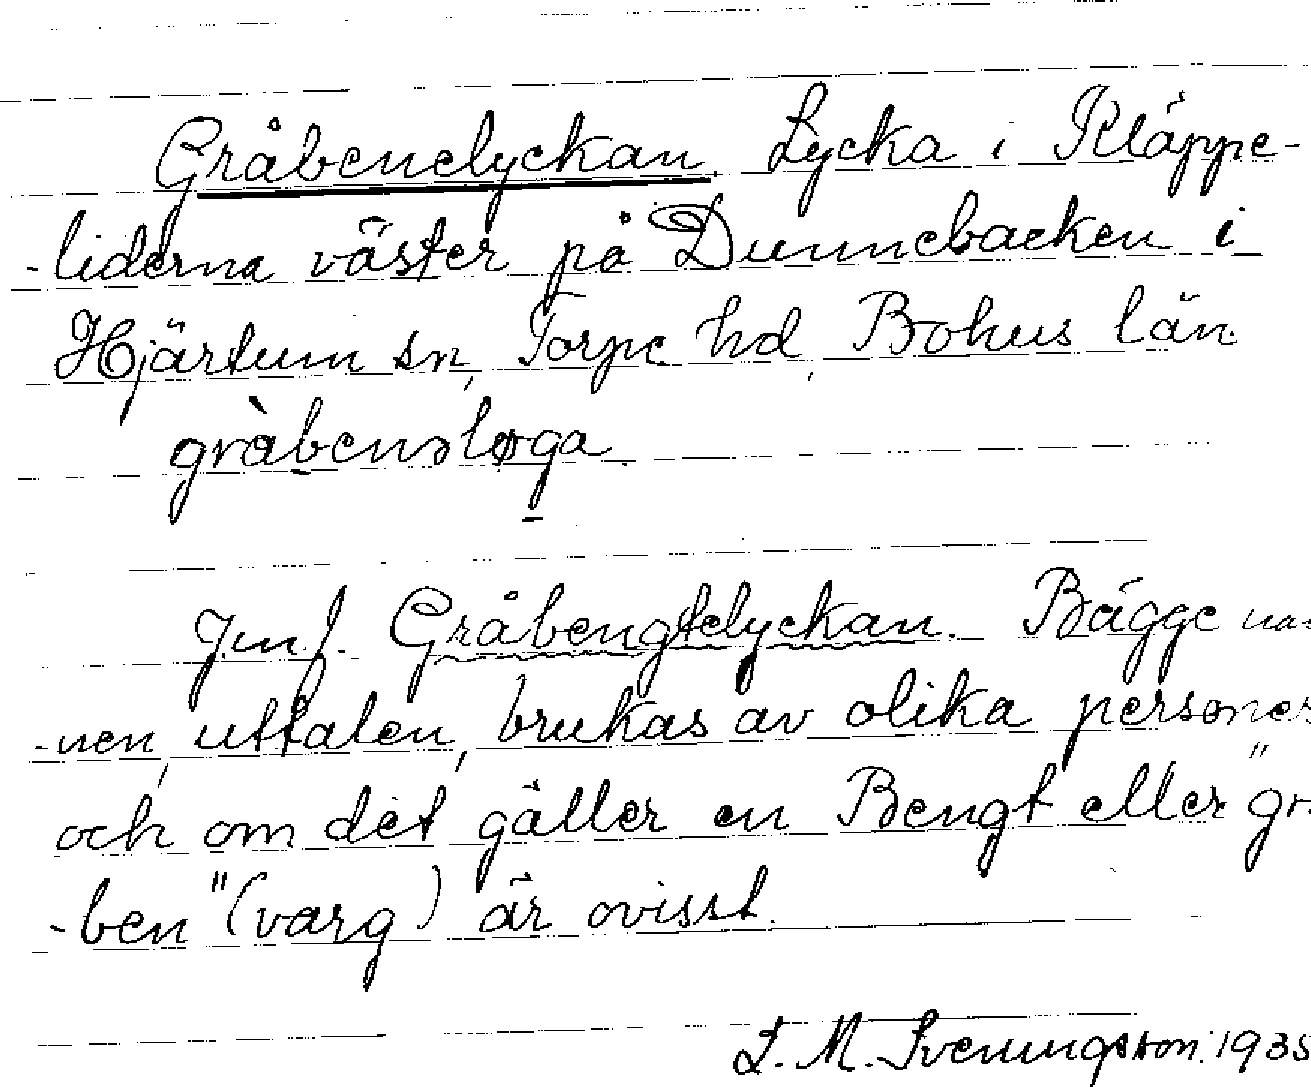 Gråbenelyckan. Lycka i Kläppe-
-liderna väster på Dunnebacken i
Hjärtum sn, Torpe hd, Bohus län.
gràbensløga
Jmf. Gråbengtelyckan. Bägge nam
-nen, uttalen, brukas av olika personer
och om det gäller en Bengt eller "grå
-ben" (varg) är ovisst.
L. M. Svenungsson. 1935